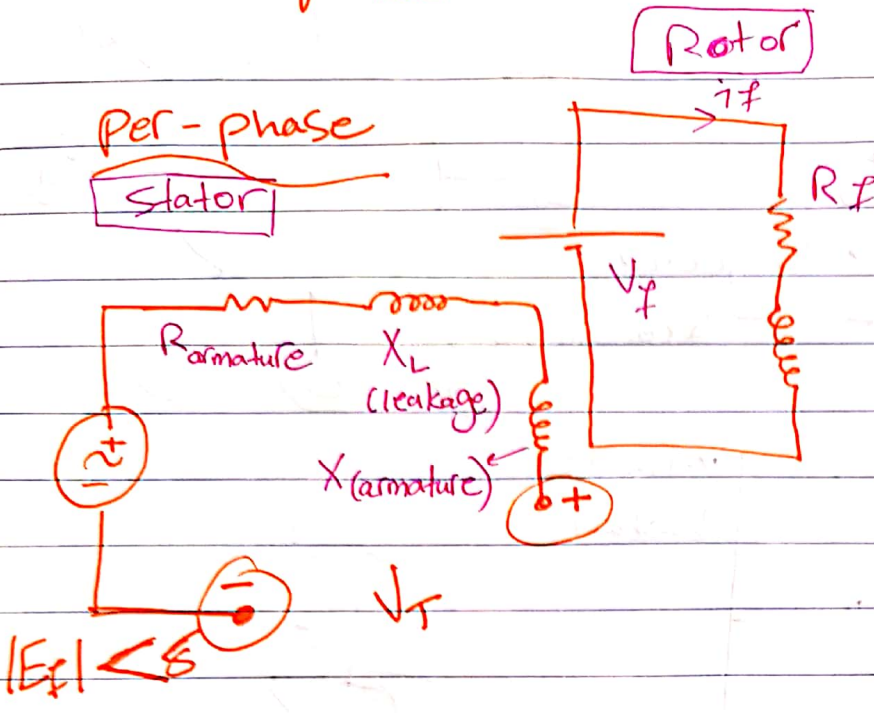 Rotor
if
per-phase
Stator
Rf
Vf
Rarmature
XL
(leakage)
X(armature)
+
~
−
+
−
VT
|Ef|<δ